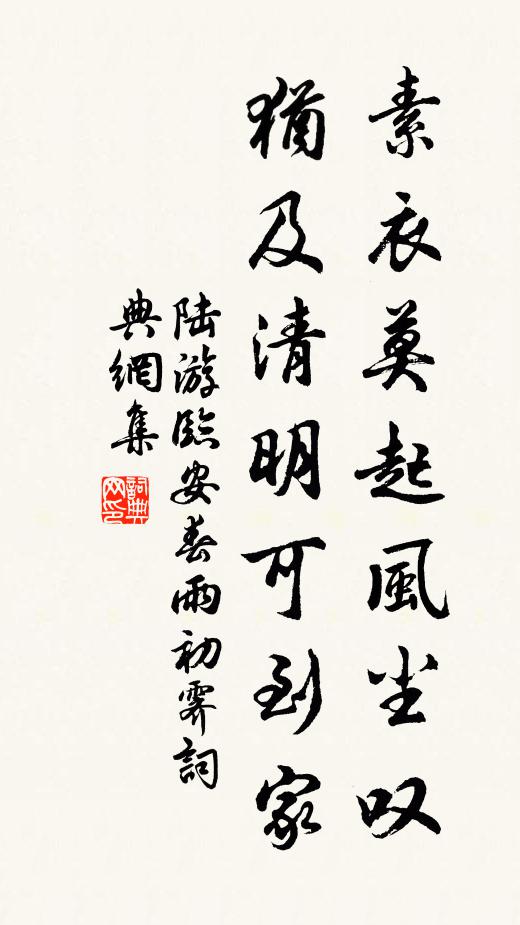 素衣莫起風尘叹
猶及清明可到家
陸游臨安春雨初霽詞
典網集
詞典网印